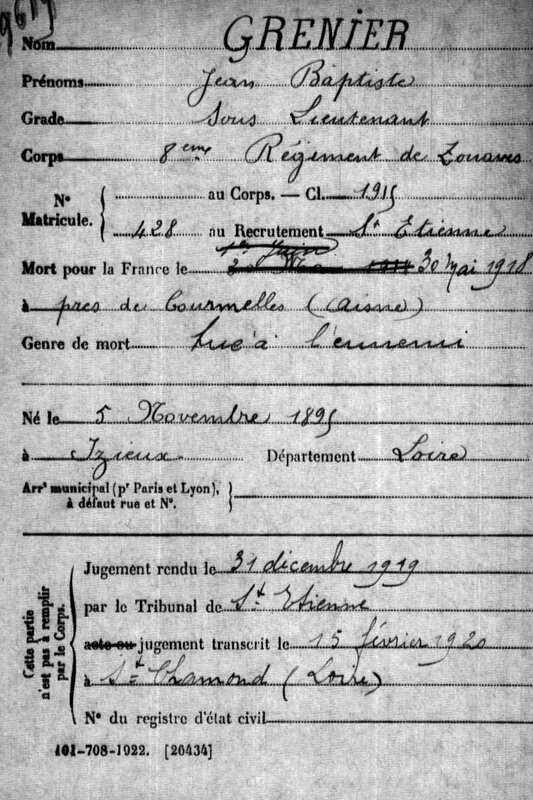 Nom GRENIER
Prénoms Jean Baptiste
Grade Sous Lieutenant
Corps 8eme Régiment de Zouaves
N° Matricule. { au Corps. — Cl. 1915
428 au Recrutement St Etienne
1er Juin
Mort pour la France le 30 Mai 1918
à pres de Courmelles (Aisne)
Genre de mort tué à l'ennemi
Né le 5 Novembre 1895
à Izieux Département Loire
Arrt municipal (pr Paris et Lyon), à défaut rue et N°. }
Cette partie n'est pas à remplir par le Corps. {
Jugement rendu le 31 décembre 1919
par le Tribunal de St Etienne
acte ou jugement transcrit le 15 février 1920
à St Chamond (Loire)
N° du registre d'état civil
101-708-1922. [20434]